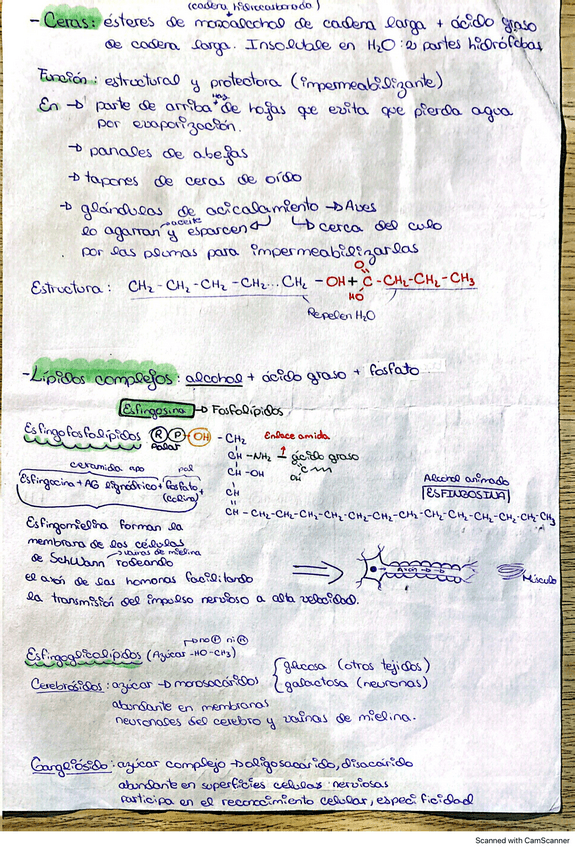 (cadena hidrocarbonada)
- Ceras: ésteres de monoalcohol de cadena larga + ácido graso
de cadena larga. Insoluble en H₂O: 2 partes hidrófobas
Función: estructural y protectora (impermeabilizante)
En → parte de arriba de hojas que evita que pierda agua
por evaporización.
→ panales de abejas
→ tapones de ceras de oído
→ glándulas de acicalamiento → Aves
lo agarran y esparcen ↵ ↳ cerca del culo
→ aceite
por las plumas para impermeabilizarlas
Estructura: CH₂ - CH₂ - CH₂ - CH₂ ... CH₂ - OH + C - CH₂ - CH₂ - CH₃
O
HO
Repelen H₂O
- Lípidos complejos: alcohol + ácido graso + fosfato
Esfingosina → Fosfolípidos
Esfingofosfolípidos R P - OH - CH₂
Polar
Enlace amida
CH - NH₂ - ácido graso
CH - OH
CH
CH - CH₂ - CH₂ - CH₂ - CH₂ - CH₂ - CH₂ - CH₂ - CH₂ - CH₂ - CH₂ - CH₂ - CH₂ - CH₃
Alcohol aminado
ESFINGOSINA
ceramida apo pol
Esfingocina + AG lignoérico + fosfato +
(colina)
Esfingomielina forman la
membrana de las células
→ vainas de mielina
de Schwann rodeando
el axón de las homonas facilitando
la transmisión del impulso nervioso a alta velocidad.
Axón
Músculo
→ no P ni R
Esfingoglicolípidos (Azúcar - HO - CH₃)
Cerebrósidos: azúcar → monosacáridos { glucosa (otros tejidos)
galactosa (neuronas)
abundante en membranas
neuronales del cerebro y vainas de mielina.
Gangliósido: azúcar complejo → oligosacárido, disacárido
abundante en superficies celulas nerviosas
Participa en el reconocimiento celular, especificidad
Scanned with CamScanner